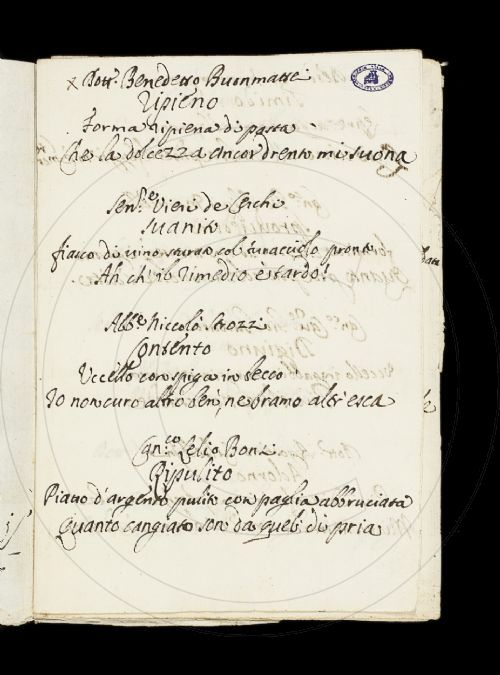 x Dott.r Benedetto Buonmattei
Ripieno
Forma ripiena di pasta
Che la dolcezza ancor drento mi suona
Sen.re Vieri de Cerchi
Svanito
fiasco di vino sturato col turacciolo pronto
Ah ch'il rimedio è tardo!
Abb.e Niccolò Strozzi
Contento
Uccello con spiga in becco
Io non curo altro ben, ne bramo altr'esca
Can.co Lelio Bonzi
Ripulito
Piatto d'argento pulito con paglia abbruciata
Quanto cangiato son da quel di pria